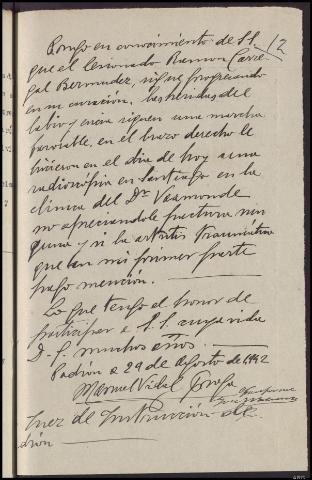 Pongo en conocimiento de S.S. 12
que el lesionado Ramon Carre-
gal Bermudez, sigue progresando
en su curación. Las heridas del
labio y encia siguen una marcha
favorable, en el brazo derecho le
hicieron en el dia de hoy una
radiografia en Santiago en la
clinica del Dr Vaamonde
no apreciandole fractura nin
guna y si la artritis traumatica
que en mi primer parte
hago mención.
Lo que tengo el honor de
participar a S.S. cuya vida
D. g. muchos años.
Padrón a 29 de agosto de 1942
Manuel Vidal
Juez de Instrucción de
drón